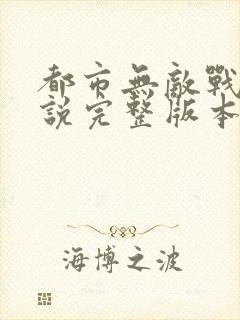 都市無敵戰
說完整版本
海博之波